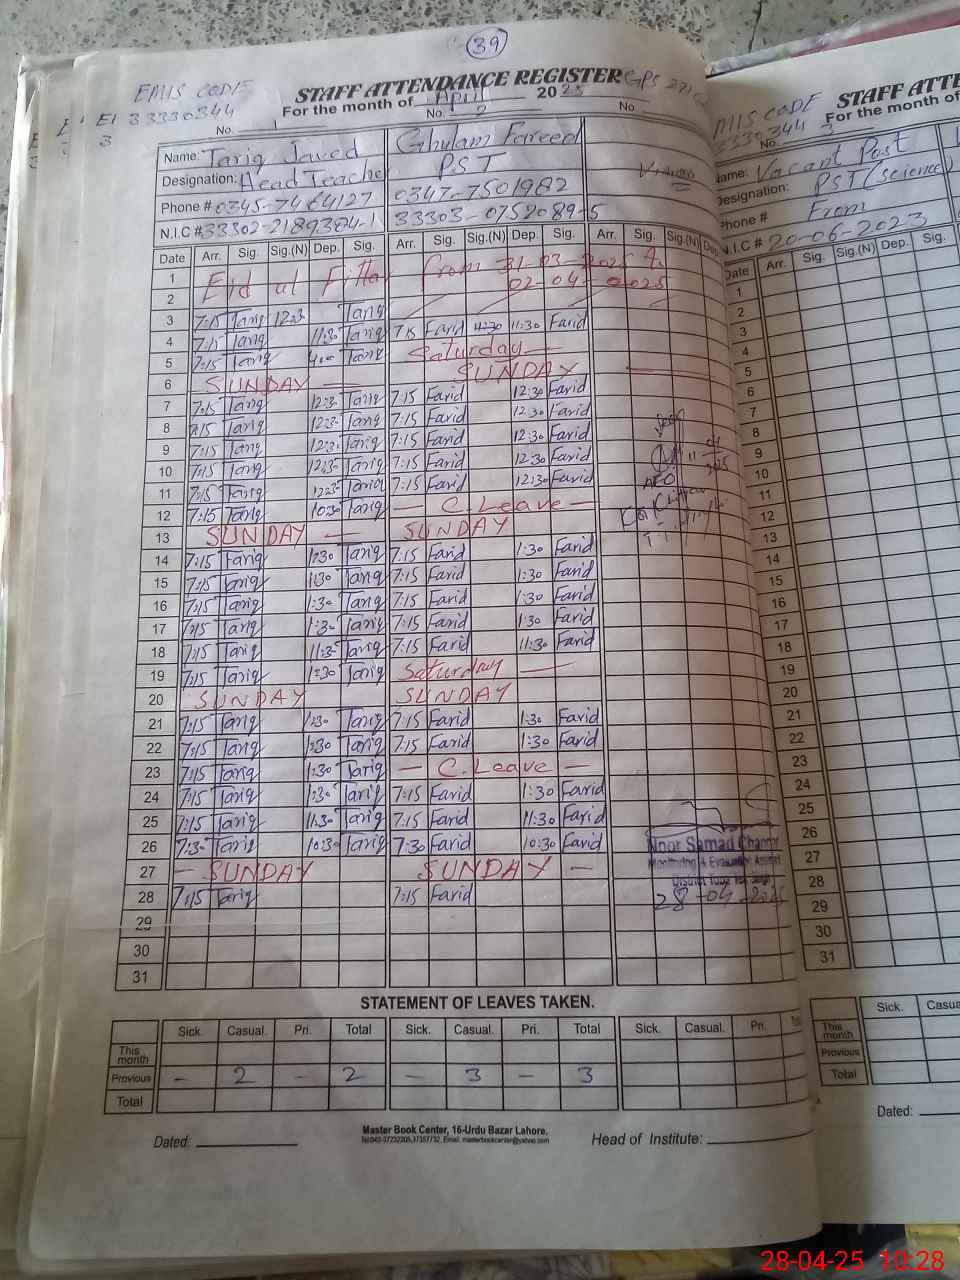 39
EMIS CODE
33330344
STAFF ATTENDANCE REGISTER GPS 271
For the month of April 2025
No. 1 No. 2 No.
Name: Tariq Javed Ghulam Fareed
Designation: Head Teacher PST
Phone # 0345-7464127 0347-7501982
N.I.C # 33302-2189384-1 33303-0752089-5
Date Arr. Sig. Sig.(N) Dep. Sig. Arr. Sig. Sig.(N) Dep. Sig. Arr. Sig. Sig.(N) Dep.
1 Eid ul Fitter from 31-03-2025 to
2 02-04-2025
3 7:15 Tariq 12:3 Tariq
4 7:15 Tariq 11:30 Tariq 7:15 Farid 11:30 Farid
5 7:15 Tariq Tariq Saturday
6 SUNDAY SUNDAY
7 7:15 Tariq 12:3- Tariq 7:15 Farid 12:30 Farid
8 7:15 Tariq 12:3- Tariq 7:15 Farid 12:30 Farid
9 7:15 Tariq 12:30 Tariq 7:15 Farid 12:30 Farid
10 7:15 Tariq 12:3- Tariq 7:15 Farid 12:30 Farid
11 7:15 Tariq 12:3- Tariq 7:15 Farid 12:30 Farid
12 7:15 Tariq 10:30 Tariq — C.Leave —
13 SUNDAY — SUNDAY
14 7:15 Tariq 1:30 Tariq 7:15 Farid 1:30 Farid
15 7:15 Tariq 1:30 Tariq 7:15 Farid 1:30 Farid
16 7:15 Tariq 1:30 Tariq 7:15 Farid 1:30 Farid
17 7:15 Tariq 1:30 Tariq 7:15 Farid 1:30 Farid
18 7:15 Tariq 11:3- Tariq 7:15 Farid 11:30 Farid
19 7:15 Tariq 1:30 Tariq Saturday —
20 SUNDAY SUNDAY
21 7:15 Tariq 1:30 Tariq 7:15 Farid 1:30 Farid
22 7:15 Tariq 1:30 Tariq 7:15 Farid 1:30 Farid
23 7:15 Tariq 1:30 Tariq — C.Leave —
24 7:15 Tariq 1:30 Tariq 7:15 Farid 1:30 Farid
25 7:15 Tariq 11:30 Tariq 7:15 Farid 11:30 Farid
26 7:30 Tariq 10:30 Tariq 7:30 Farid 10:30 Farid
27 — SUNDAY SUNDAY —
28 7:15 Tariq 7:15 Farid
29
30
31
Noor Samad
Monitoring & Evaluation
District Toba Tek Singh
28-04-2025
STATEMENT OF LEAVES TAKEN.
Sick. Casual. Pri. Total Sick. Casual. Pri. Total Sick. Casual. Pri.
This month
Previous — 2 — 2 — 3 — 3
Total
Master Book Center, 16-Urdu Bazar Lahore.
Dated: Head of Institute:
EMIS CODE
STAFF ATTE
For the month of
33330344
No.
Name: Vacant Post
Designation: PST (science)
Phone # From
N.I.C # 20-06-2023
Date Arr. Sig. Sig.(N) Dep. Sig.
1
2
3
4
5
6
7
8
9
10
11
12
13
14
15
16
17
18
19
20
21
22
23
24
25
26
27
28
29
30
31
Sick. Casua
This month
Previous
Total
Dated:
28-04-25 10:28